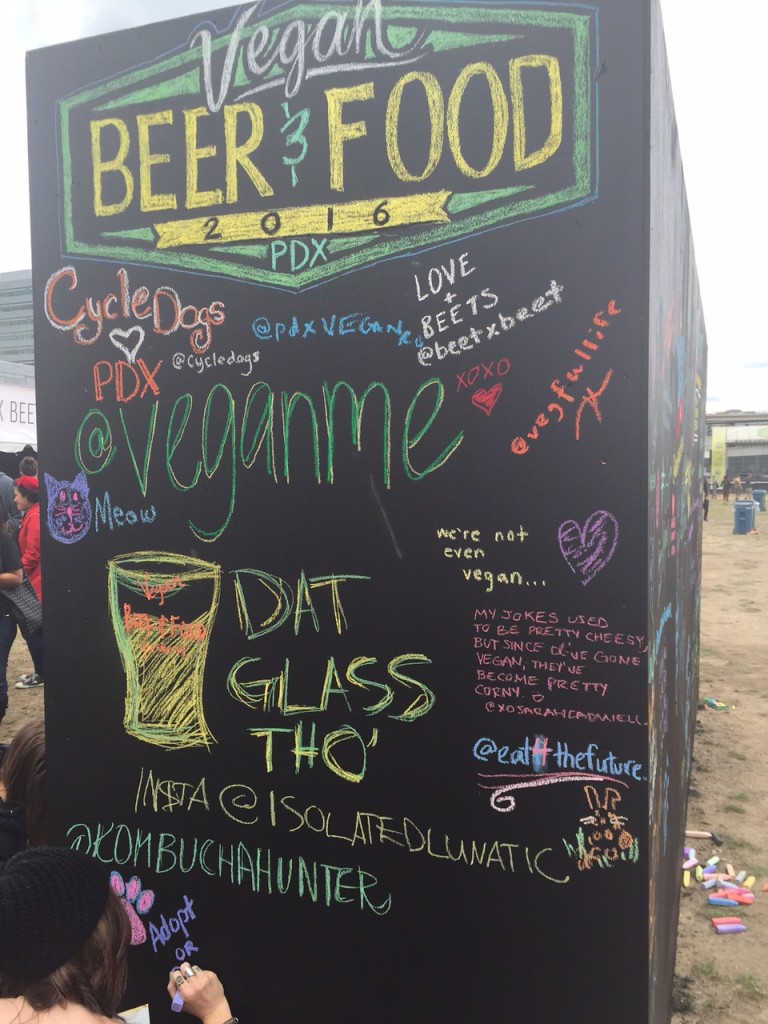 Vegan
BEER & FOOD
2016
PDX
CycleDogs
PDX
@cycledogs
@pdxVEGAN
LOVE
+
BEETS
@beetxbeet
XOXO
@vegfullife
@veganme
Meow
X BEE
we're not
even
vegan...
Vegan
BEER & FOOD
DAT
GLASS
THO'
MY JOKES USED
TO BE PRETTY CHEESY,
BUT SINCE I'VE GONE
VEGAN, THEY'VE
BECOME PRETTY
CORNY.
@XOSARAHCADWELL
@eat4thefuture
INSTA @ISOLATEDLUNATIC
@KOMBUCHAHUNTER
Adopt
OR